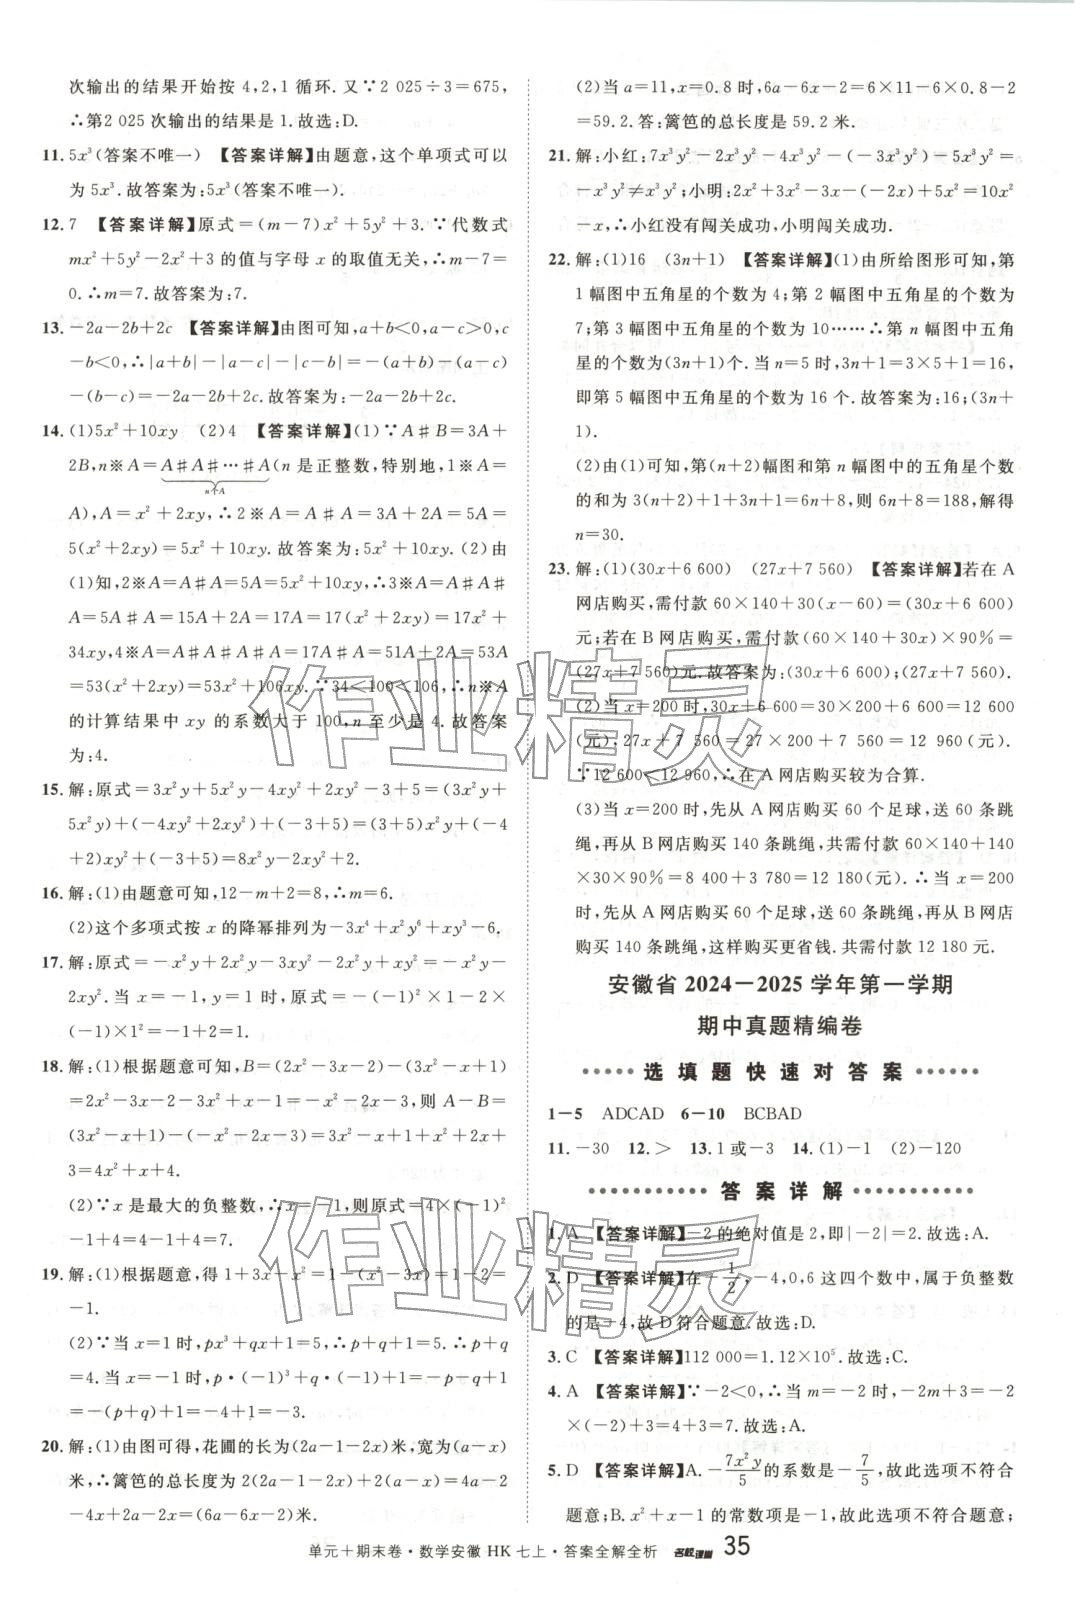 次输出的结果开始按 4,2,1 循环. 又∵2 025÷3=675,
∴第2 025 次输出的结果是 1.故选:D.
11. 5x³(答案不唯一) 【答案详解】由题意,这个单项式可以
为 5x³.故答案为:5x³(答案不唯一).
12. 7 【答案详解】原式=(m-7)x²+5y²+3.∵代数式
mx²+5y²-2x²+3 的值与字母 x 的取值无关,∴m-7=
0.∴m=7.故答案为:7.
13. -2a-2b+2c 【答案详解】由图可知,a+b<0,a-c>0,c
-b<0,∴|a+b|-|c-a|-|c-b|=-(a+b)-(a-c)
-(b-c)=-2a-2b+2c.故答案为:-2a-2b+2c.
14. (1)5x²+10xy (2)4 【答案详解】(1)∵A♯B=3A+
2B,n※A=A♯A♯…♯A(n 是正整数,特别地,1※A=
n个A
A),A=x²+2xy,∴2※A=A♯A=3A+2A=5A=
5(x²+2xy)=5x²+10xy.故答案为:5x²+10xy.(2)由
(1)知,2※A=A♯A=5A=5x²+10xy,∴3※A=A♯A♯
A=5A♯A=15A+2A=17A=17(x²+2xy)=17x²+
34xy,4※A=A♯A♯A♯A=17A♯A=51A+2A=53A
=53(x²+2xy)=53x²+106xy.∵34<100<106,∴n※A
的计算结果中 xy 的系数大于 100,n 至少是 4.故答案
为:4.
15. 解:原式=3x²y+5x²y-4xy²+2xy²-3+5=(3x²y+
5x²y)+(-4xy²+2xy²)+(-3+5)=(3+5)x²y+(-4
+2)xy²+(-3+5)=8x²y-2xy²+2.
16. 解:(1)由题意可知,12-m+2=8,∴m=6.
(2)这个多项式按 x 的降幂排列为-3x⁴+x²y⁶+xy³-6.
17. 解:原式=-x²y+2x²y-3xy²-2x²y+xy²=-x²y-
2xy².当 x=-1,y=1 时,原式=-(-1)²×1-2×
(-1)×1²=-1+2=1.
18. 解:(1)根据题意可知,B=(2x²-3x-2)-(3x²-x+1)
=2x²-3x-2-3x²+x-1=-x²-2x-3,则 A-B=
(3x²-x+1)-(-x²-2x-3)=3x²-x+1+x²+2x+
3=4x²+x+4.
(2)∵x 是最大的负整数,∴x=-1,则原式=4×(-1)²
-1+4=4-1+4=7.
19. 解:(1)根据题意,得 1+3x-x²=1-(x²-3x)=1-2=
-1.
(2)∵当 x=1 时,px³+qx+1=5,∴p+q+1=5,∴p+q
=4.当 x=-1 时,p·(-1)³+q·(-1)+1=-p-q+1
=-(p+q)+1=-4+1=-3.
20. 解:(1)由图可得,花圃的长为(2a-1-2x)米,宽为(a-x)
米,∴篱笆的总长度为 2(2a-1-2x)+2(a-x)=4a-2
-4x+2a-2x=(6a-6x-2)米.
(2)当 a=11,x=0.8 时,6a-6x-2=6×11-6×0.8-2
=59.2.答:篱笆的总长度是 59.2 米.
21. 解:小红:7x³y²-2x³y²-4x³y²-(-3x³y²)-5x³y²=
-x³y²≠x³y²;小明:2x²+3x²-3x-(-2x)+5x²=10x²
-x,∴小红没有闯关成功,小明闯关成功.
22. 解:(1)16 (3n+1) 【答案详解】(1)由所给图形可知,第
1 幅图中五角星的个数为 4;第 2 幅图中五角星的个数为
7;第 3 幅图中五角星的个数为 10……∴第 n 幅图中五角
星的个数为(3n+1)个.当 n=5 时,3n+1=3×5+1=16,
即第 5 幅图中五角星的个数为 16 个.故答案为:16;(3n+
1).
(2)由(1)可知,第(n+2)幅图和第 n 幅图中的五角星个数
的和为 3(n+2)+1+3n+1=6n+8,则 6n+8=188,解得
n=30.
23. 解:(1)(30x+6 600) (27x+7 560) 【答案详解】若在 A
网店购买,需付款 60×140+30(x-60)=(30x+6 600)
元;若在 B 网店购买,需付款(60×140+30x)×90%=
(27x+7 560)元.故答案为:(30x+6 600);(27x+7 560).
(2)当 x=200 时,30x+6 600=30×200+6 600=12 600
(元);27x+7 560=27×200+7 560=12 960(元).
∵12 600<12 960,∴在 A 网店购买较为合算.
(3)当 x=200 时,先从 A 网店购买 60 个足球,送 60 条跳
绳,再从 B 网店购买 140 条跳绳,共需付款 60×140+140
×30×90%=8 400+3 780=12 180(元).∴当 x=200
时,先从 A 网店购买 60 个足球,送 60 条跳绳,再从 B 网店
购买 140 条跳绳,这样购买更省钱.共需付款 12 180 元.
安徽省 2024—2025 学年第一学期
期中真题精编卷
选填题快速对答案
1—5 ADCAD 6—10 BCBAD
11. -30 12. > 13. 1 或-3 14. (1)-1 (2)-120
答案详解
1. A 【答案详解】-2 的绝对值是 2,即|-2|=2.故选:A.
2. D 【答案详解】在-1/2,-4,0,6 这四个数中,属于负整数
的是-4,故 D 符合题意.故选:D.
3. C 【答案详解】112 000=1.12×10⁵.故选:C.
4. A 【答案详解】∵-2<0,∴当 m=-2 时,-2m+3=-2
×(-2)+3=4+3=7.故选:A.
5. D 【答案详解】A.-7x²y/5的系数是-7/5,故此选项不符合
题意;B. x²+x-1 的常数项是-1,故此选项不符合题意;
单元+期末卷·数学安徽 HK 七上·答案全解全析 名校课堂 35
作业精灵
作业精灵